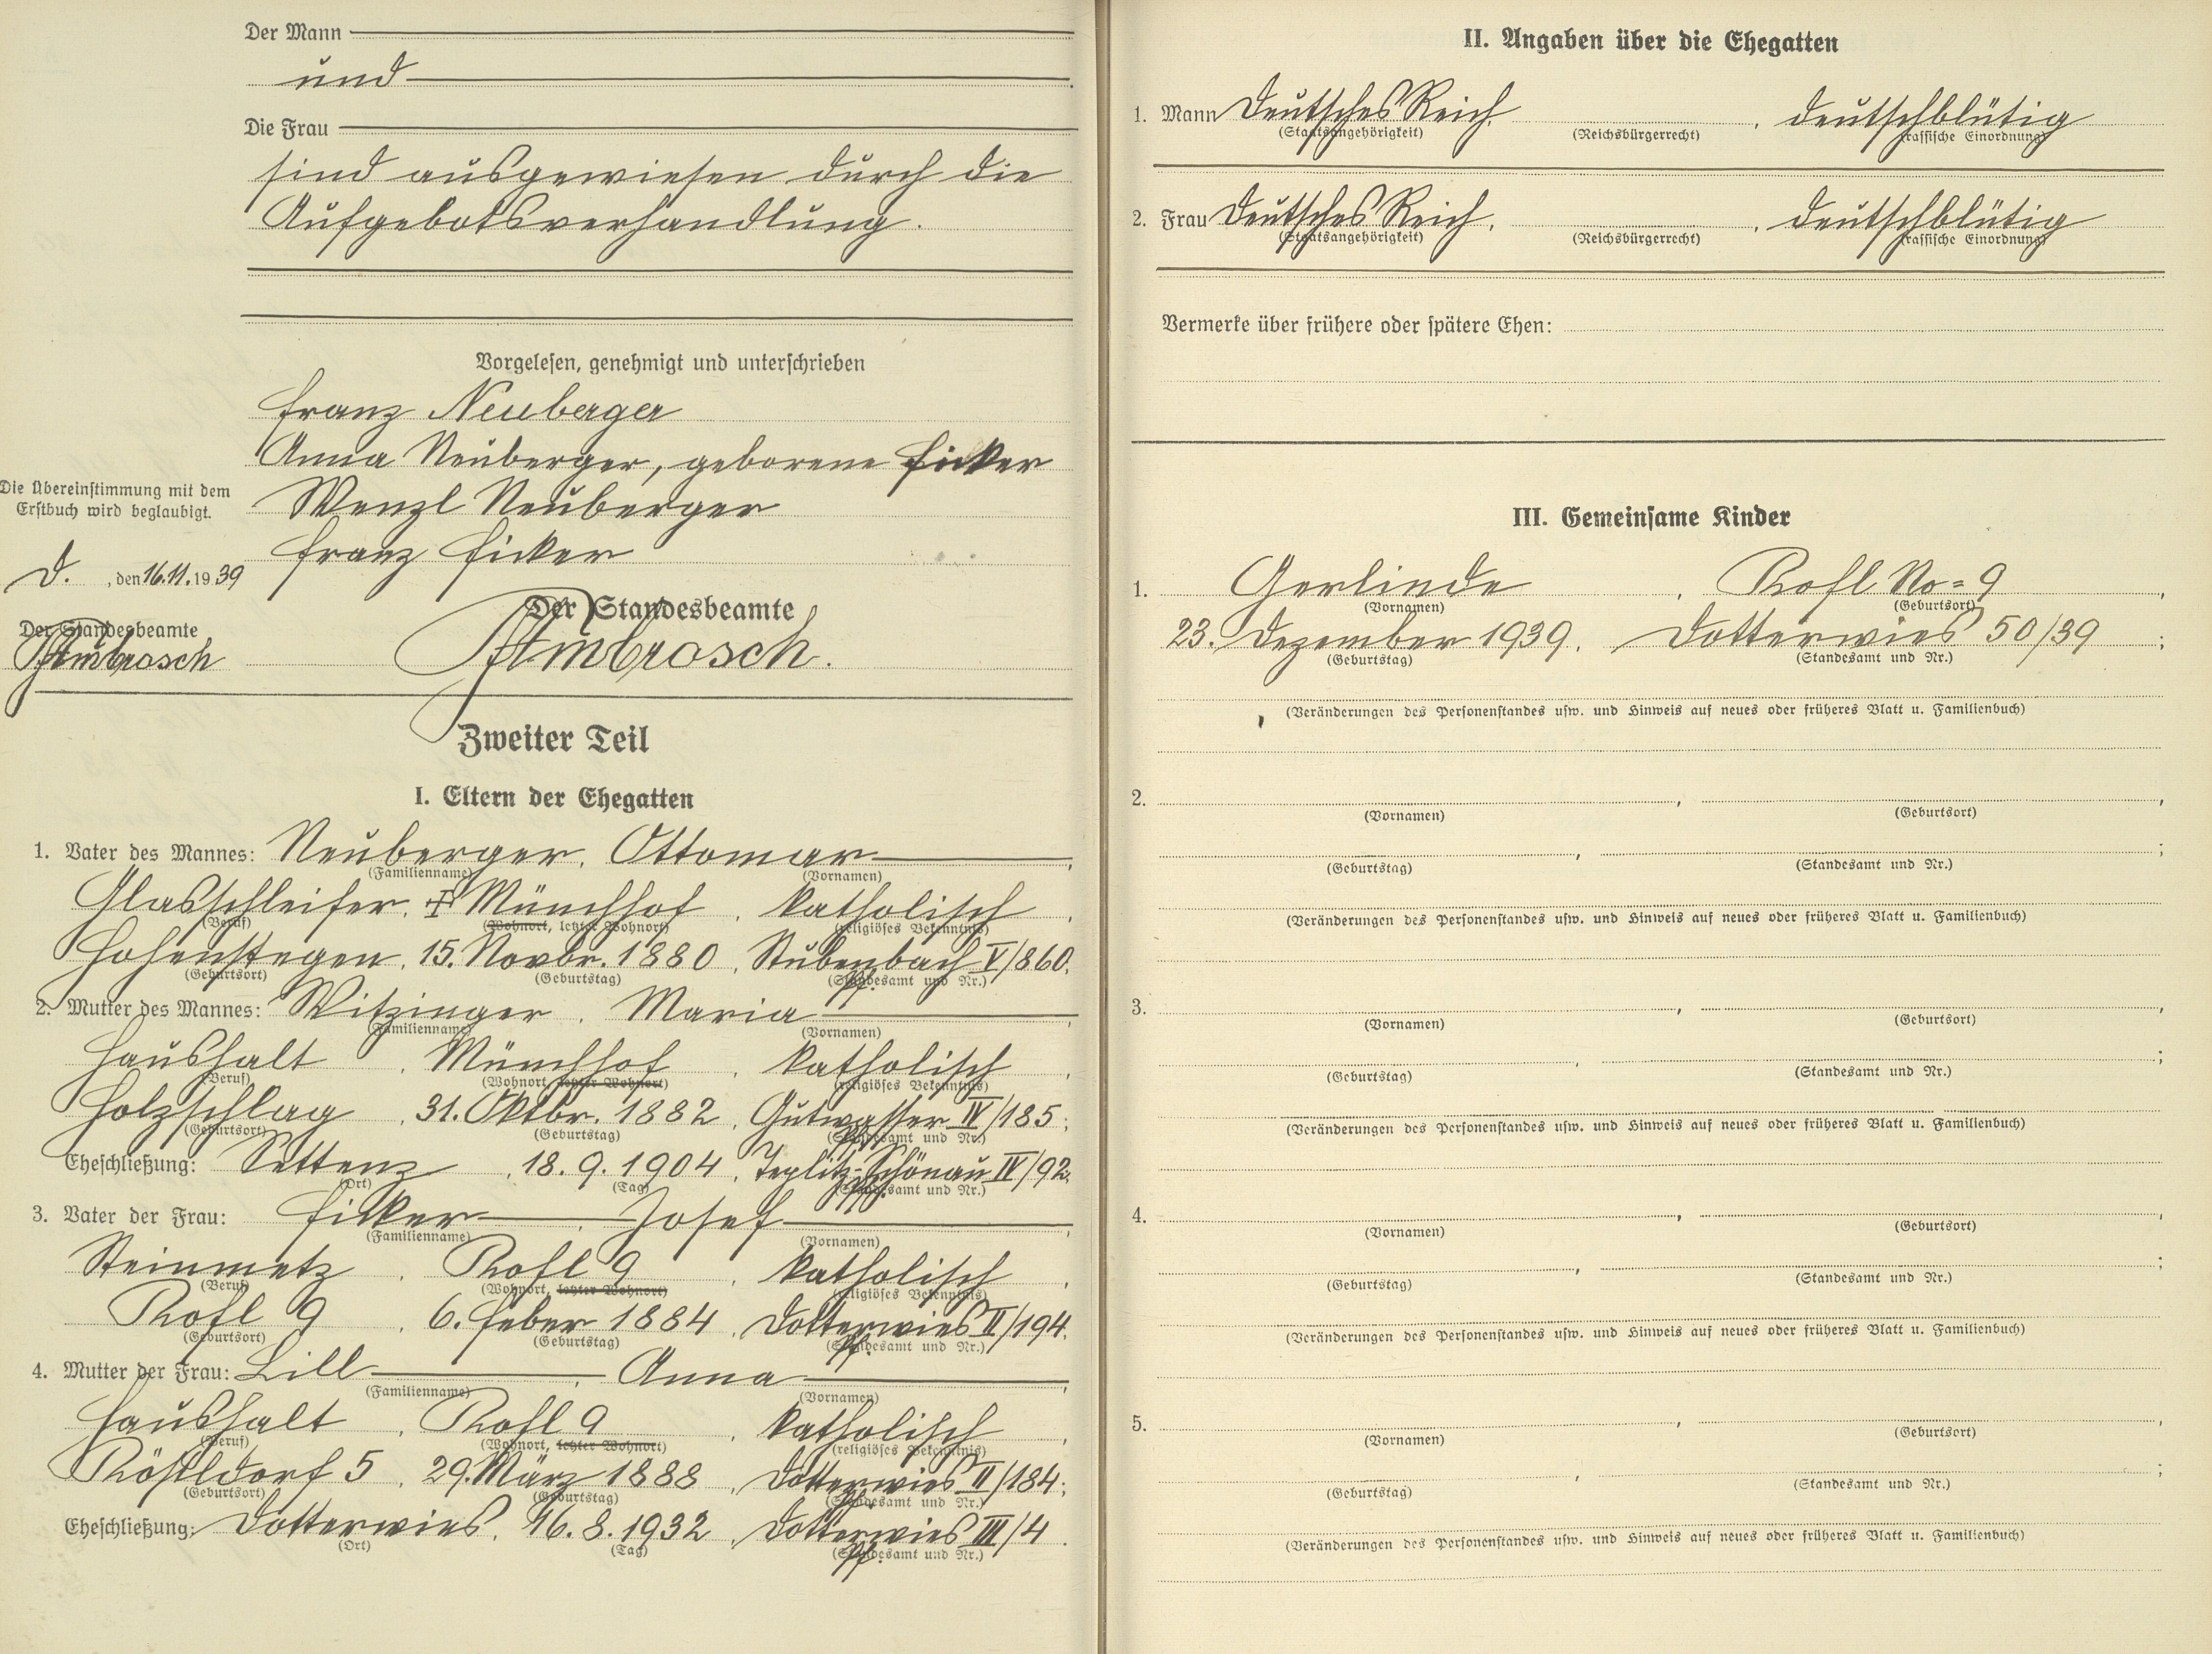 Der Mann
und
Die Frau
sind ausgewiesen durch die
Aufgebotsverhandlung.
Vorgelesen, genehmigt und unterschrieben
Franz Neuberger
Anna Neuberger, geborene Ficker
Wenzl Neuberger
Franz Ficker
Die Übereinstimmung mit dem
Erstbuch wird beglaubigt.
D. , den 16.11.1939
Der Standesbeamte
Ambrosch
Der Standesbeamte
Ambrosch.
Zweiter Teil
I. Eltern der Ehegatten
1. Vater des Mannes: Neuberger, Ottomar
(Familienname) (Vornamen)
Glasschleifer, Münchhof, katholisch,
(Beruf) (Wohnort, letzter Wohnort) (religiöses Bekenntnis)
Hohenstegen, 15. Novbr. 1880, Stubenbach V/860.
(Geburtsort) (Geburtstag) (Standesamt und Nr.)
2. Mutter des Mannes: Witzinger, Maria
(Familienname) (Vornamen)
Haushalt, Münchhof, katholisch,
(Beruf) (Wohnort, letzter Wohnort) (religiöses Bekenntnis)
Holzschlag, 31. Oktbr. 1882, Gutwasser IV/185;
(Geburtsort) (Geburtstag) (Standesamt und Nr.)
Eheschließung: Settenz, 18. 9. 1904, Teplitz-Schönau IV/92.
(Ort) (Tag) (Standesamt und Nr.)
3. Vater der Frau: Ficker, Josef
(Familienname) (Vornamen)
Steinmetz, Poßl 9, katholisch,
(Beruf) (Wohnort, letzter Wohnort) (religiöses Bekenntnis)
9, 6. Feber 1884, Dotterwies II/194.
(Geburtsort) (Geburtstag) (Standesamt und Nr.)
4. Mutter der Frau: Lill, Anna
(Familienname) (Vornamen)
Haushalt, 9, katholisch,
(Beruf) (Wohnort, letzter Wohnort) (religiöses Bekenntnis)
Rößldorf 5, 29. März 1888, Dotterwies II/184;
(Geburtsort) (Geburtstag) (Standesamt und Nr.)
Eheschließung: Dotterwies, 16. 8. 1932, Dotterwies III/4.
(Ort) (Tag) (Standesamt und Nr.)
II. Angaben über die Ehegatten
1. Mann Deutsches Reich, , deutschblütig
(Staatsangehörigkeit) (Reichsbürgerrecht) (rassische Einordnung)
2. Frau Deutsches Reich, , deutschblütig
(Staatsangehörigkeit) (Reichsbürgerrecht) (rassische Einordnung)
Vermerke über frühere oder spätere Ehen:
III. Gemeinsame Kinder
1. Gerlinde, No= 9,
(Vornamen) (Geburtsort)
23. Dezember 1939, Dotterwies 50/39;
(Geburtstag) (Standesamt und Nr.)
(Veränderungen des Personenstandes usw. und Hinweis auf neues oder früheres Blatt u. Familienbuch)
2. , ,
(Vornamen) (Geburtsort)
, ;
(Geburtstag) (Standesamt und Nr.)
(Veränderungen des Personenstandes usw. und Hinweis auf neues oder früheres Blatt u. Familienbuch)
3. , ,
(Vornamen) (Geburtsort)
, ;
(Geburtstag) (Standesamt und Nr.)
(Veränderungen des Personenstandes usw. und Hinweis auf neues oder früheres Blatt u. Familienbuch)
4. , ,
(Vornamen) (Geburtsort)
, ;
(Geburtstag) (Standesamt und Nr.)
(Veränderungen des Personenstandes usw. und Hinweis auf neues oder früheres Blatt u. Familienbuch)
5. , ,
(Vornamen) (Geburtsort)
, ;
(Geburtstag) (Standesamt und Nr.)
(Veränderungen des Personenstandes usw. und Hinweis auf neues oder früheres Blatt u. Familienbuch)